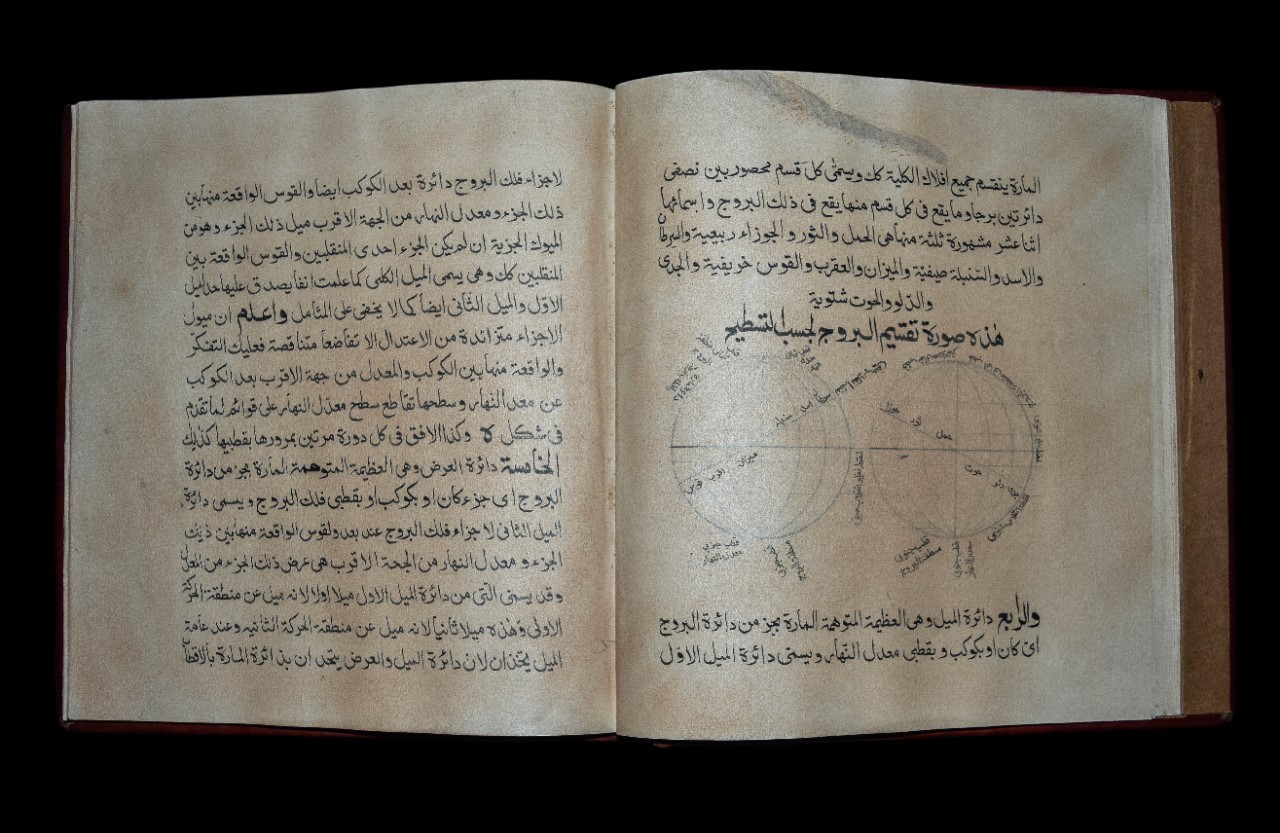 المارة ينقسم جميع افلاك الكلية كك ويسمى كل قسم محصور بين نصفى
دائرتين برجا وما يقع فى كل قسم منها يقع فى ذلك البروج واسمائها
اثنا عشر مشهورة ثلثة منها هى الحمل والثور والجوزاء ربيعية والسرطان
والاسد والسنبلة صيفية والميزان والعقرب والقوس خريفية والجدى
والدلو والحوت شتوية
هذه صورة تقسيم البروج بحسب التسطيح
سنبله
اسد
ميزان
عقرب
قوس
قطب جنوبى
معدل النهار
ثور
حمل
حوت
دلو
قطب جنوبى
منطقة البروج
والرابع دائرة الميل وهى العظيمة المتوهمة المارة بجزء من دائرة البروج
اى كان او بكوكب و بقطبى معدل النهار ويسمى دائرة الميل الاول
لاجزاء فلك البروج دائرة بعد الكوكب ايضا والقوس الواقعة منها بين
ذلك الجزء ومعدل النهار من الجهة الاقرب ميل ذلك الجزء وهو من
الميول الجزية ان لم يكن الجزء احدى المنقلبين والقوس الواقعة بين
المنقلبين كك وهى يسمى الميل الكلى كما علمت انفا يصدق عليها حد الميل
الاول والميل الثانى ايضا كما لا يخفى على المتأمل واعلم ان ميول
الاجزاء متزائدة من الاعتدال الا تقاضعا متناقصة فعليك التفكر
والواقعة منها بين الكوكب والمعدل من جهة الاقرب بعد الكوكب
عن معدل النهار وسطحها تقاطع سطح معدل النهار على قوائم لما تقدم
فى شكل ه وكذا الافق فى كل دورة مرتين بمرورها بقطبيها كذلك
الخامسة دائرة العرض وهى العظيمة المتوهمة المارة بجزء من دائرة
البروج اى جزء كان او بكوكب او بقطبى فلك البروج و يسمى دائرة
الميل الثانى لاجزاء فلك البروج عند بعد ولقوس الواقعة منها بين ذلك
الجزء و معدل النهار من الجهة الاقرب هى عرض ذلك الجزء من المعدل
وقد يسمى التى من دائرة الميل الاول ميلا اولا لانه ميل عن منطقة الحركة
الاولى وهذه ميلا ثانيا لانه ميل عن منطقة الحركة الثانيه وعند عامة
الميل يتحدان لان دائرة الميل والعرض يتحدان بدائرة المارة بالاقطاب